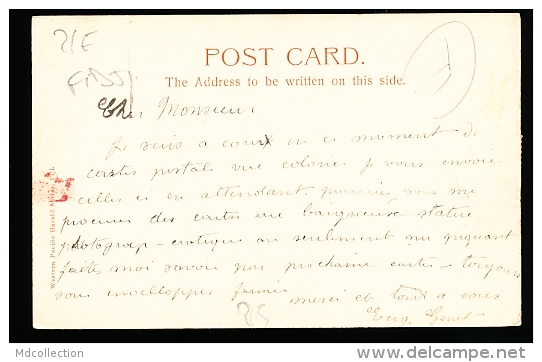 21E
FIDJI
POST CARD.
The Address to be written on this side.
Cher Monsieur
Je suis a court en ce moment de
cartes postale vue colonies je vous envoie
celles ci en attendant. pourriez vous me
procurer des cartes vue baigneuse statue
photograp - erotique ou seulement nu piquant
faites moi savoir par prochaine carte - toujours
sous enveloppes fermée
merci et tout a vous
Eug.
25
Western Pacific Herald
Mdcollection
www.delcampe.net